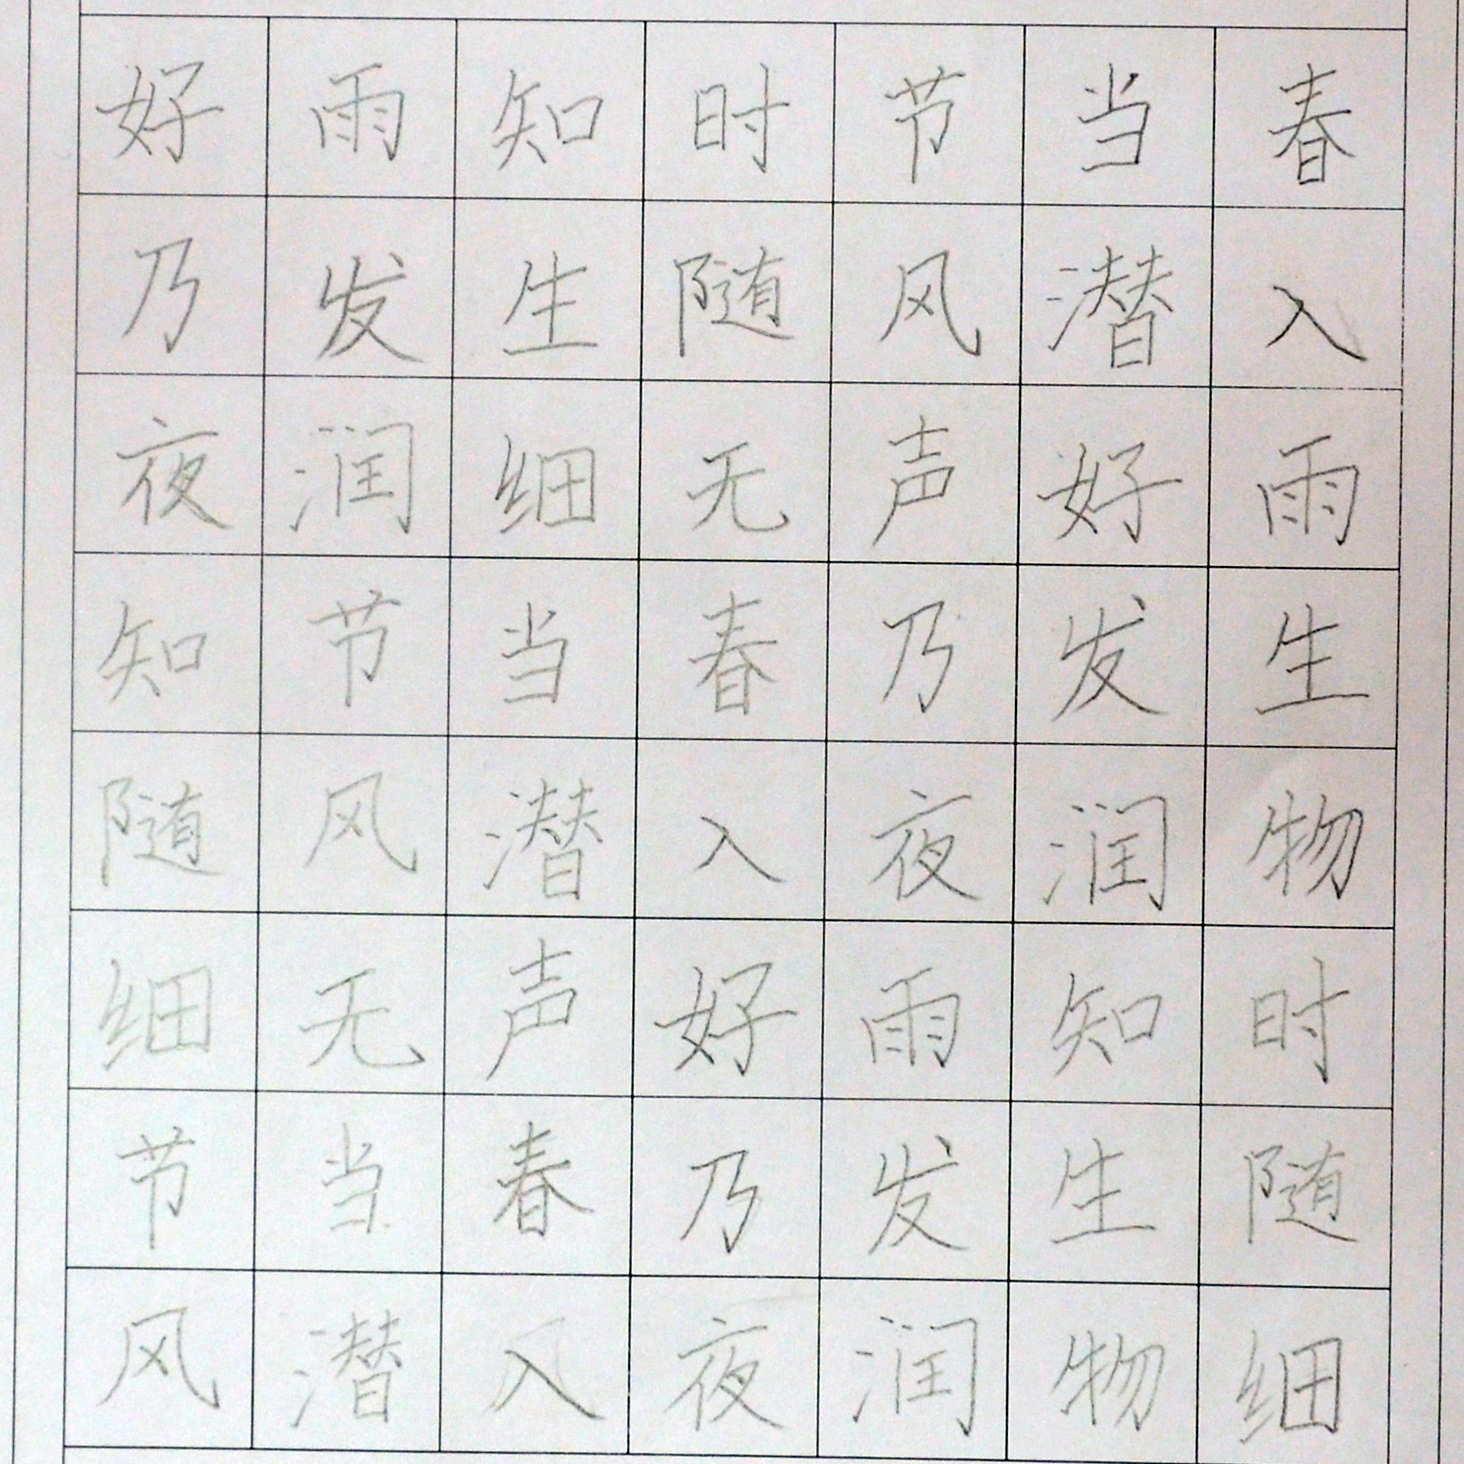 好雨知时节当春
乃发生随风潜入
夜润细无声好雨
知节当春乃发生
随风潜入夜润物
细无声好雨知时
节当春乃发生随
风潜入夜润物细